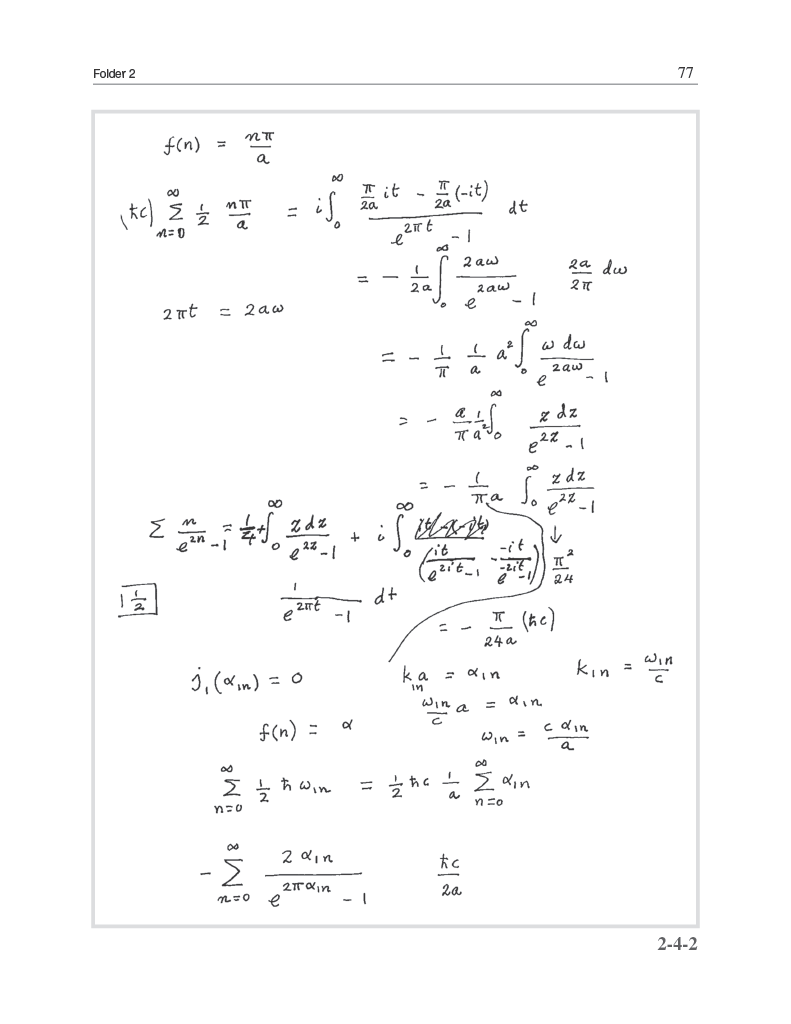 Folder 2 77
f(n) = nπ/a
(ħc) ∑_{n=0}^{∞} 1/2 nπ/a = i∫_0^∞ (π/2a it − π/2a (−it))/(e^{2πt} − 1) dt
= − 1/2a ∫_0^∞ 2aω/(e^{2aω} − 1) 2a/2π dω
2πt = 2aω
= − 1/π 1/a a² ∫_0^∞ ω dω/(e^{2aω} − 1)
= − a/π 1/a² ∫_0^∞ z dz/(e^{2z} − 1)
= − 1/πa ∫_0^∞ z dz/(e^{2z} − 1)
∑ n/(e^{2n} − 1) = 1/4 + ∫_0^∞ z dz/(e^{2z} − 1) + i ∫_0^∞ (it/(e^{2it} − 1) − −it/(e^{−2it} − 1)) ↓ π²/24
1 1/2 1/(e^{2πt} − 1) dt
= − π/24a (ħc)
j₁(α₁ₙ) = 0 k₁ₙ a = α₁ₙ k₁ₙ = ω₁ₙ/c
ω₁ₙ/c a = α₁ₙ
f(n) = α ω₁ₙ = c α₁ₙ/a
∑_{n=0}^{∞} 1/2 ħ ω₁ₙ = 1/2 ħc 1/a ∑_{n=0}^{∞} α₁ₙ
− ∑_{n=0}^{∞} 2 α₁ₙ/(e^{2πα₁ₙ} − 1) ħc/2a
2-4-2